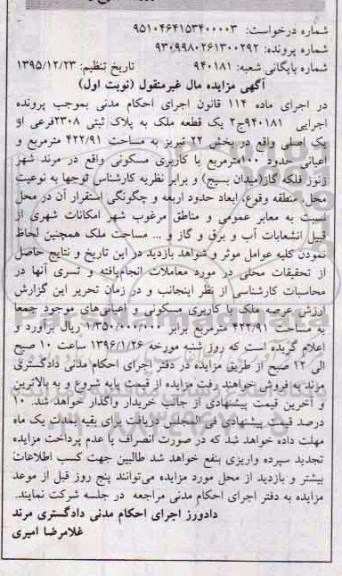 شماره درخواست: ۹۵۱۰۴۶۴۱۵۳۴۰۰۰۰۳
شماره پرونده: ۹۳۰۹۹۸۰۲۶۱۳۰۰۲۹۲
شماره بایگانی شعبه: ۹۴۰۱۸۱ تاریخ تنظیم: ۱۳۹۵/۱۲/۲۳
آگهی مزایده مال غیرمنقول (نوبت اول)
در اجرای ماده ۱۱۴ قانون اجرای احکام مدنی بموجب پرونده
اجرایی ۹۴۰۱۸۱ج۲ یک قطعه ملک به پلاک ثبتی ۲۳۰۸فرعی از
یک اصلی واقع در بخش ۲۲ تبریز به مساحت ۴۲۲/۹۱ مترمربع و
اعیانی حدود ۱۰۰مترمربع با کاربری مسکونی واقع در مرند شهر
زنوز فلکه گاز(میدان بسیج) و برابر نظریه کارشناس توجها به نوعیت
محل، منطقه وقوع، ابعاد حدود اربعه و چگونگی استقرار آن در محل
نسبت به معابر عمومی و مناطق مرغوب شهر امکانات شهری از
قبیل انشعابات آب و برق و گاز و ... مساحت ملک همچنین لحاظ
نمودن کلیه عوامل موثر و شواهد بازدید در این تاریخ و نتایج حاصل
از تحقیقات محلی در مورد معاملات انجام‌یافته و تسری آنها در
محاسبات کارشناسی از نظر اینجانب و در زمان تحریر این گزارش
ارزش عرصه ملک با کاربری مسکونی و اعیانی‌های موجود جمعا
به مساحت ۴۲۲/۹۱ مترمربع برابر ۱/۳۵۰/۰۰۰/۰۰۰ ریال برآورد و
اعلام گردیده است که روز شنبه مورخه ۱۳۹۶/۱/۲۶ ساعت ۱۰ صبح
الی ۱۲ صبح از طریق مزایده در دفتر اجرای احکام مدنی دادگستری
مرند به فروش خواهند رفت مزایده از قیمت پایه شروع و به بالاترین
و آخرین قیمت پیشنهادی از جالب خریدار واگذار خواهد شد. ۱۰
درصد قیمت پیشنهادی فی‌المجلس دریافت برای بقیه مدت یک ماه
مهلت داده خواهد شد که در صورت انصراف یا عدم پرداخت مزایده
تجدید سپرده واریزی بنفع خواهد شد طالبین جهت کسب اطلاعات
بیشتر و بازدید از محل مورد مزایده می‌توانند پنج روز قبل از موعد
مزایده به دفتر اجرای احکام مدنی مراجعه در جلسه شرکت نمایند.
دادورز اجرای احکام مدنی دادگستری مرند
غلامرضا امیری